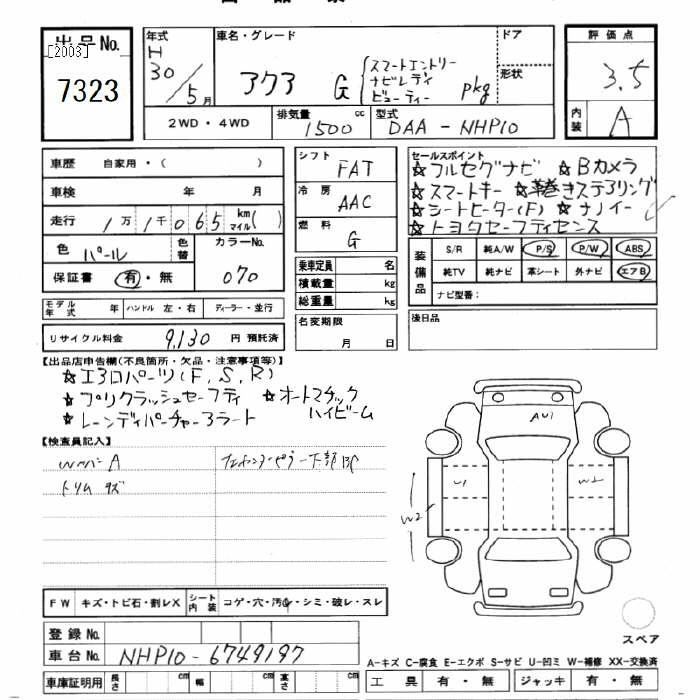 出品No.
[2003]
7323
年式 H 30/5月
車名・グレード アクア G スマートエントリー ナビレディ ビューティー pkg
ドア
形状
2WD・4WD
排気量 1500 cc
型式 DAA-NHP10
評価点 3.5
内装 A
車歴 自家用・( )
車検 年 月
走行 1万1千065 km マイル( )
色 パール 色替 カラーNo. 070
保証書 有・無
モデル年式 年 ハンドル 左・右 ディーラー・並行
リサイクル料金 9,130 円 預託済
シフト FAT
冷房 AAC
燃料 G
乗車定員 名
積載量 kg
総重量 kg
名変期限
月 日
セールスポイント
☆フルセグナビ ☆Bカメラ
☆スマートキー ☆革巻きステアリング
☆シートヒーター(F) ☆ナノイー
☆トヨタセーフティセンス
装備品
S/R 純A/W P/S P/W ABS
純TV 純ナビ 革シート 外ナビ エアB
ナビ型番:
後日品
【出品店申告欄(不良箇所・欠品・注意事項等)】
☆エアロパーツ(F,S,R)
☆プリクラッシュセーフティ ☆オートマチックハイビーム
☆レーンディパーチャーアラート
【検査員記入】
A
トリム キズ
AU1
U1
W2
FW キズ・トビ石・割レX シート内装 コゲ・穴・汚レ・シミ・破レ・スレ
登録No.
車台No. NHP10-6749197
車庫証明用 長さ cm 幅 cm 高さ cm
スペア
A-キズ C-腐食 E-エクボ S-サビ U-凹ミ W-補修 XX-交換済
工具 有・無 ジャッキ 有・無